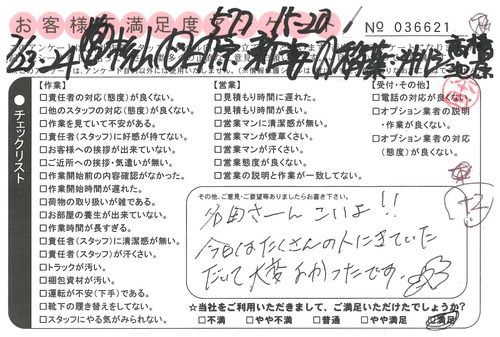 お客様満足度
No 036621
チェックリスト
【作業】
□責任者の対応(態度)が良くない。
□他のスタッフの対応(態度)が良くない。
□作業を見ていて不安がある。
□責任者(スタッフ)に好感が持てない。
□お客様への挨拶が出来ていない。
□ご近所への挨拶・気遣いが無い。
□作業開始前の内容確認がなかった。
□作業開始時間が遅れた。
□荷物の取り扱いが雑である。
□お部屋の養生が出来ていない。
□作業時間が長すぎる。
□責任者(スタッフ)に清潔感が無い。
□責任者(スタッフ)が汗くさい。
□トラックが汚い。
□梱包資材が汚い。
□運転が不安(下手)である。
□靴下の履き替えをしてない。
□スタッフにやる気がみられない。
【営業】
□見積もり時間に遅れた。
□見積もり時間が長い。
□営業マンに清潔感が無い。
□営業マンが煙草くさい。
□営業マンが汗くさい。
□営業態度が良くない。
□営業の説明と作業が一致してない。
【受付・その他】
□電話の対応が良くない
□オプション業者の説明
・作業が良くない。
□オプション業者の対応
(態度)が良くない。
その他、ご意見・ご要望等ありましたらお書き下さい。
今日はたくさんの人にきていた
だいて大変よかったです。
☆当社をご利用いただきまして、ご満足いただけたでしょうか?
□不満 □やや不満 □普通 □やや満足 □満足